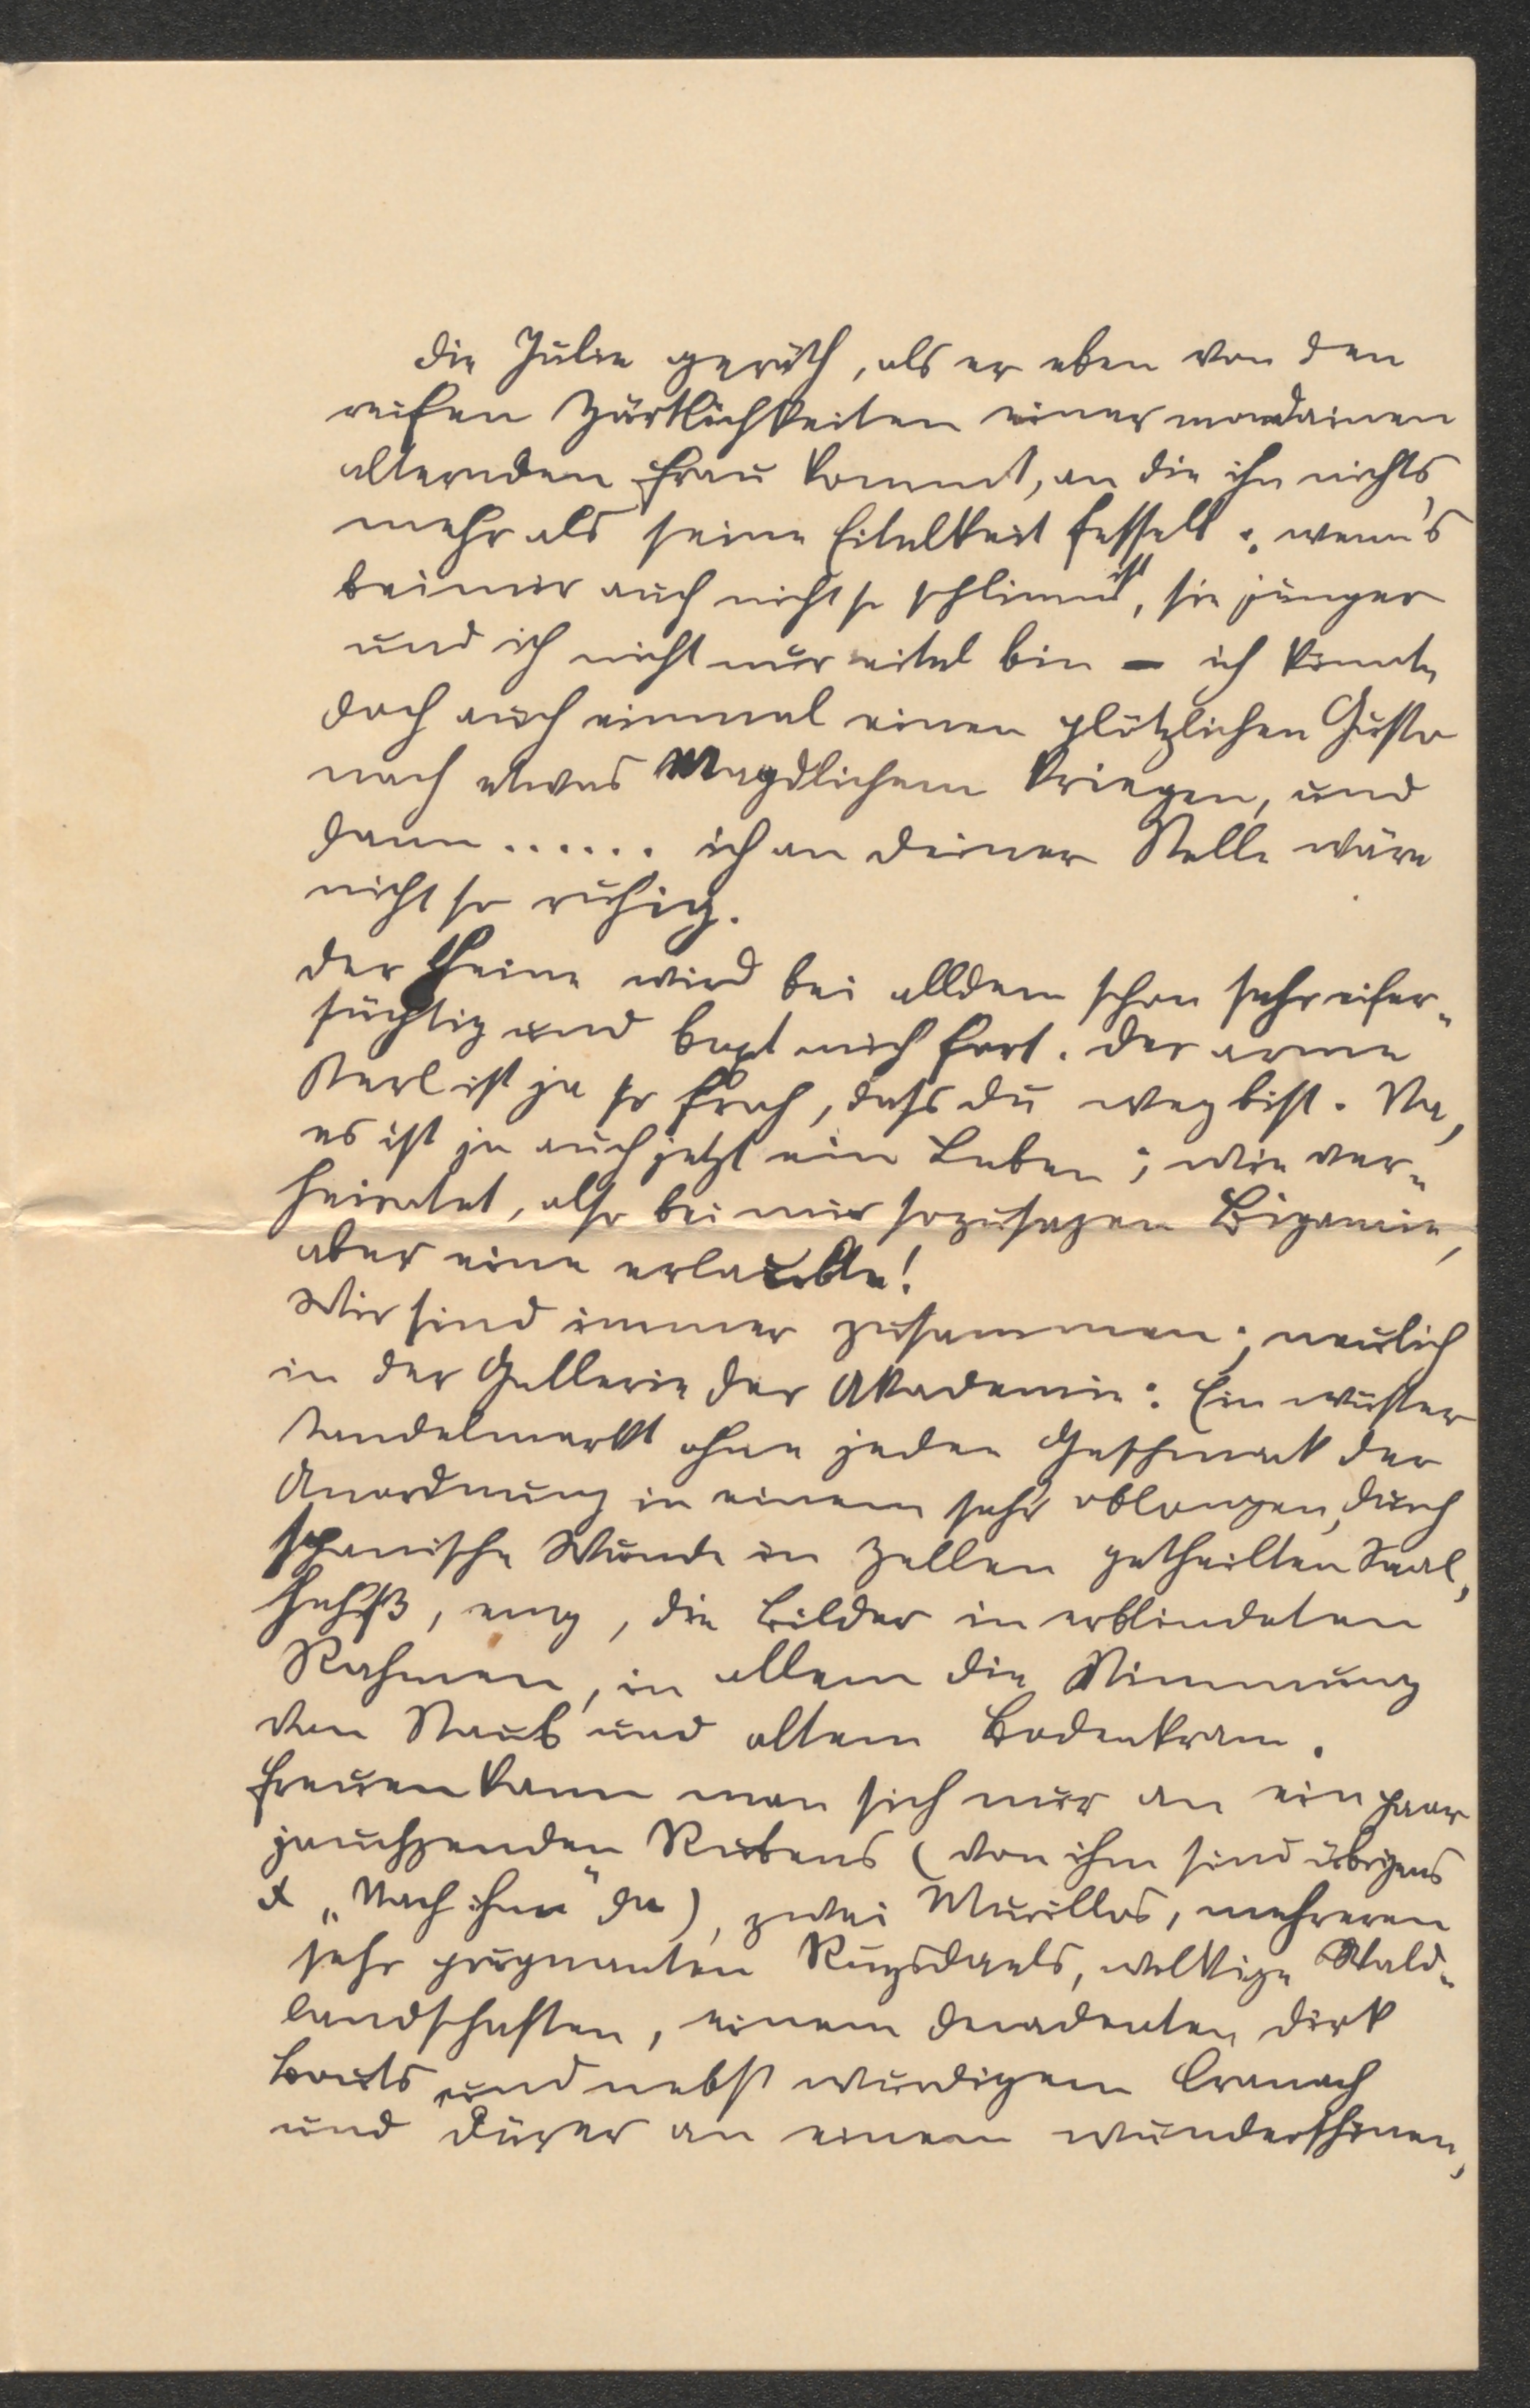 die Julie geräth, als er eben von den
reifen Zärtlichkeiten einer mondainen
alternden Frau kommt, an die ihn nichts
mehr als seine Eitelkeit fesselt; wenn's
bei mir auch nicht so schlimm ist, sie jünger
und ich nicht nur eitel bin – ich könnte
doch auch einmal einen plötzlichen Gusto
nach etwas Magdlichem kriegen, und
dann ...... ich an deiner Stelle wäre
nicht so ruhig.
Der Heine wird bei alldem schon sehr eifer-
süchtig und boxt mich fort. Der arme
Kerl ist ja so froh, dass du weg bist. Na,
es ist ja auch jetzt ein Leben; wie ver-
heiratet, also bei mir sozusagen Bigamie,
aber eine erlaubte!
Wir sind immer zusammen; neulich
in der Gallerie der Akademie: Ein wüster
Tandelmarkt ohne jeden Geschmack der
Anordnung in einem sehr oblongen, durch
spanische Wände in Zellen getheilten Saal,
, eng, die Bilder in erblindeten
Rahmen, in allem die Stimmung
von Staub und altem Bodenkram.
Freuen kann man sich nur an ein paar
jauchzenden Rubens (von ihm sind übrigens
x „Nach ihm" da), zwei Murillos, mehreren
sehr prägnanten Ruysdaels, wolkige Wald-
landschaften, einem decadenten Dirk
Bouts und nebst würdigem Cranach
und Dürer an einem wunderschönen,